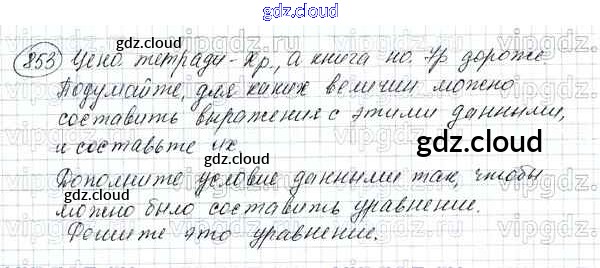 gdz.cloud
853 Цена тетради - Хр., а книга на Ур дороже
Подумайте, для каких величин можно
составить выражения с этими данными,
и составьте их
Дополните условие данными так, чтобы
можно было составить уравнение.
Решите это уравнение.
gdz.cloud
gdz.cloud
gdz.cloud
gdz.cloud
gdz.cloud
gdz.cloud